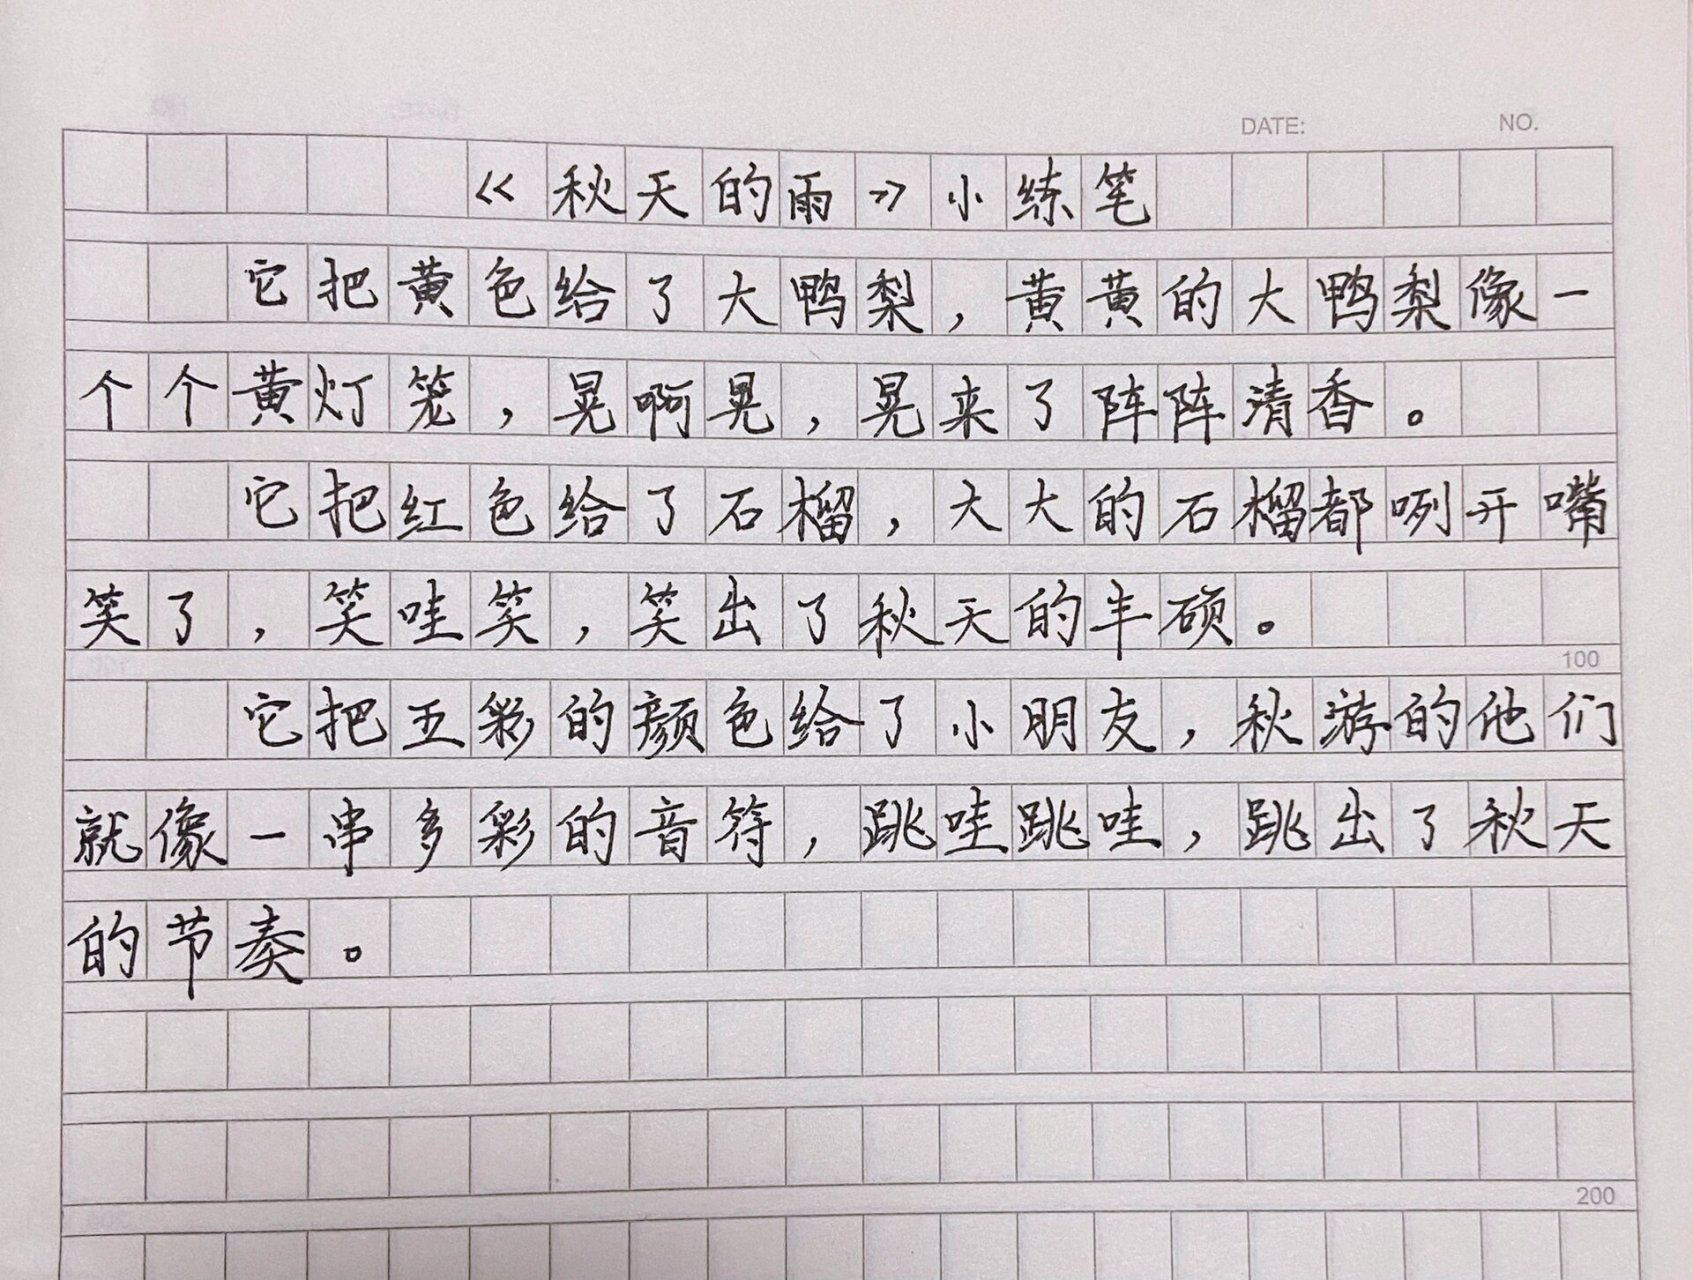 DATE: NO.
《秋天的雨》小练笔
它把黄色给了大鸭梨，黄黄的大鸭梨像一
个个黄灯笼，晃啊晃，晃来了阵阵清香。
它把红色给了石榴，大大的石榴都咧开嘴
笑了，笑哇笑，笑出了秋天的丰硕。
100
它把五彩的颜色给了小朋友，秋游的他们
就像一串多彩的音符，跳哇跳哇，跳出了秋天
的节奏。
200